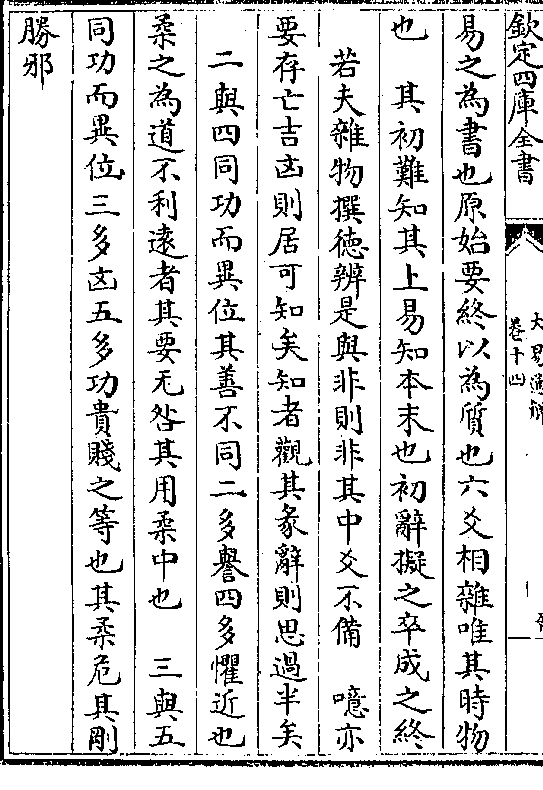 欽定四庫全書
卷十四
易之為書也原始要終以為質也六爻相雜唯其時物
也　其初難知其上易知本末也初辭擬之卒成之終
若夫雜物撰德辨是與非則非其中爻不備　噫亦
要存亡吉凶則居可知矣知者觀其彖辭則思過半矣
二與四同功而異位其善不同二多譽四多懼近也
柔之為道不利遠者其要无咎其用柔中也　三與五
同功而異位三多凶五多功貴賤之等也其柔危其剛
勝邪